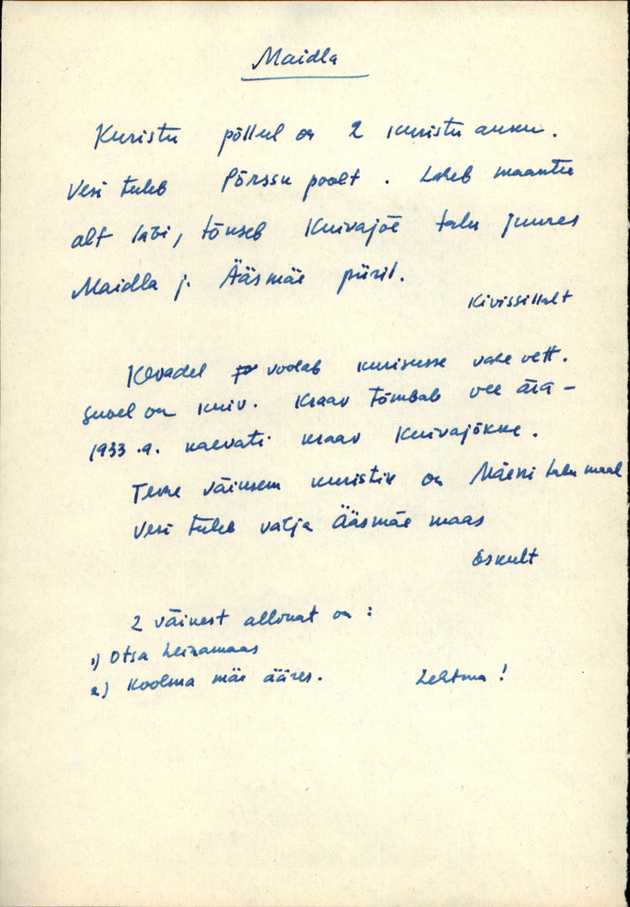 Maidla
Kuristu põllul on 2 kuristu auku.
Vesi tuleb Põrssu poolt. Läheb maantee
alt läbi, tõuseb Kuivajõe talu juures
Maidla j. Ääsmäe piiril.
Kivissillalt
Kevadel voolab kurisusse vahe vett.
Suvel on kuiv. Kraav tõmbab vee ära –
1933.a. kaevati kraav Kuivajõkke.
Teine väiksem kuristik on Mäeski talu maal
Vesi tuleb välja Ääsmäe maas
Eskült
2 väikest allikat on:
1) Otsa heinamaas
2) Koolma mäe ääres. Lehtma!